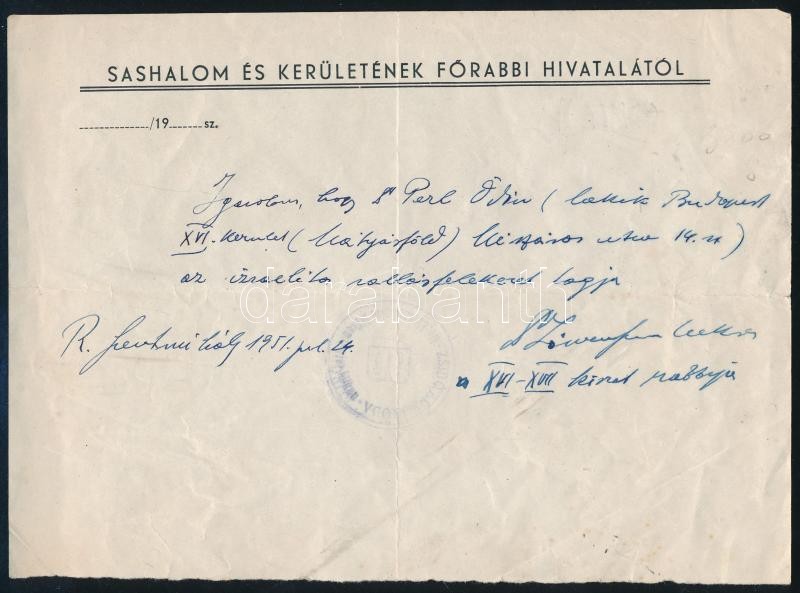 SASHALOM ÉS KERÜLETÉNEK FŐRABBI HIVATALÁTÓL
/19 sz.
Igazolom, hogy Perl Ödön (lakik Budapest
XVI. kerület (Mátyásföld) Mészáros utca 14. sz)
az izraelita vallásfelekezet tagja
R. szentmihály 1951. júl. 24.
a XVI–XVII körzet rabbija
darabanth